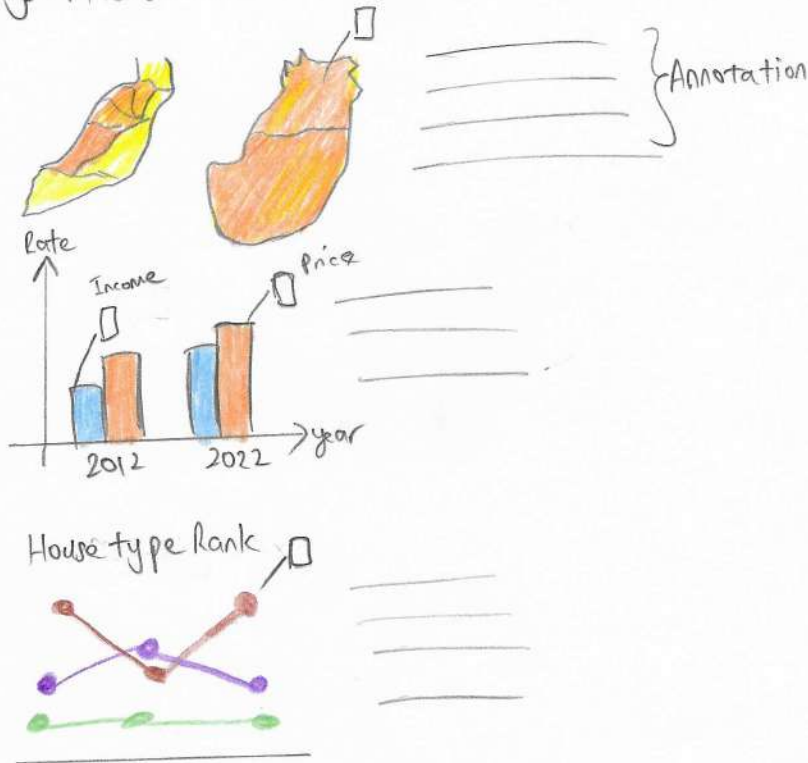 Annotation
Rate
Income
Price
year
2012 2022
House type Rank